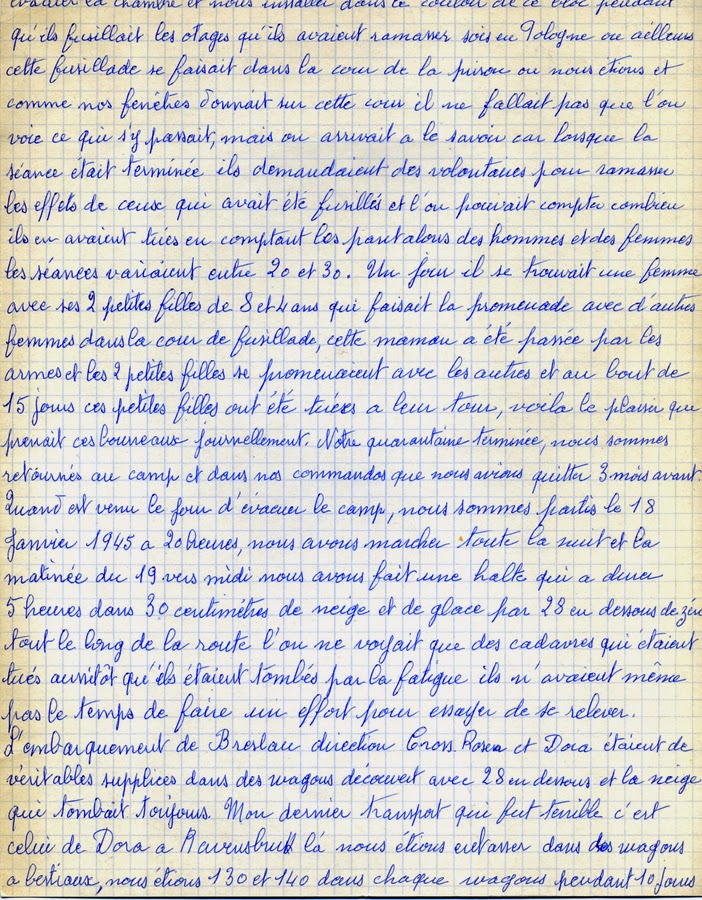 évacuer la chambre et nous installer dans le couloir de ce bloc pendant
qu'ils fusillait les otages qu'ils avaient ramasser sois en Pologne ou ailleurs
cette fusillade se faisait dans la cour de la prison ou nous étions et
comme nos fenêtres donnait sur cette cour il ne fallait pas que l'on
voie ce qui s'y passait, mais on arrivait a le savoir car lorsque la
séance était terminée ils demandaient des volontaires pour ramasser
les effets de ceux qui avait été fusillés et l'on pouvait compter combien
ils en avaient tués en comptant les pantalons des hommes et des femmes
les séances variaient entre 20 et 30. Un jour il se trouvait une femme
avec ses 2 petites filles de 8 et 4 ans qui faisait la promenade avec d'autres
femmes dans la cour de fusillade, cette maman a été passée par les
armes et les 2 petites filles se promenaient avec les autres et au bout de
15 jours ces petites filles ont été tuées a leur tour, voila le plaisir que
prenait ces bourreaux journellement. Notre quarantaine terminée, nous sommes
retournés au camp et dans nos commandos que nous avions quitter 3 mois avant.
Quand est venu le jour d'évacuer le camp, nous sommes partis le 18
Janvier 1945 a 20 heures, nous avons marcher toute la nuit et la
matinée du 19 vers midi nous avons fait une halte qui a durer
5 heures dans 30 centimètres de neige et de glace par 28 en dessous de zéro
tout le long de la route l'on ne voyait que des cadavres qui étaient
tués aussitôt qu'ils étaient tombés par la fatigue ils n'avaient même
pas le temps de faire un effort pour essayer de se relever.
L'embarquement de Breslau direction Cross Rosen et Dora étaient de
véritables supplices dans des wagons découvert avec 28 en dessous et la neige
qui tombait toujours. Mon dernier transport qui fut terrible c'est
celui de Dora a Ravensbruck là nous étions entasser dans des wagons
a bestiaux, nous étions 130 et 140 dans chaque wagons pendant 10 jours